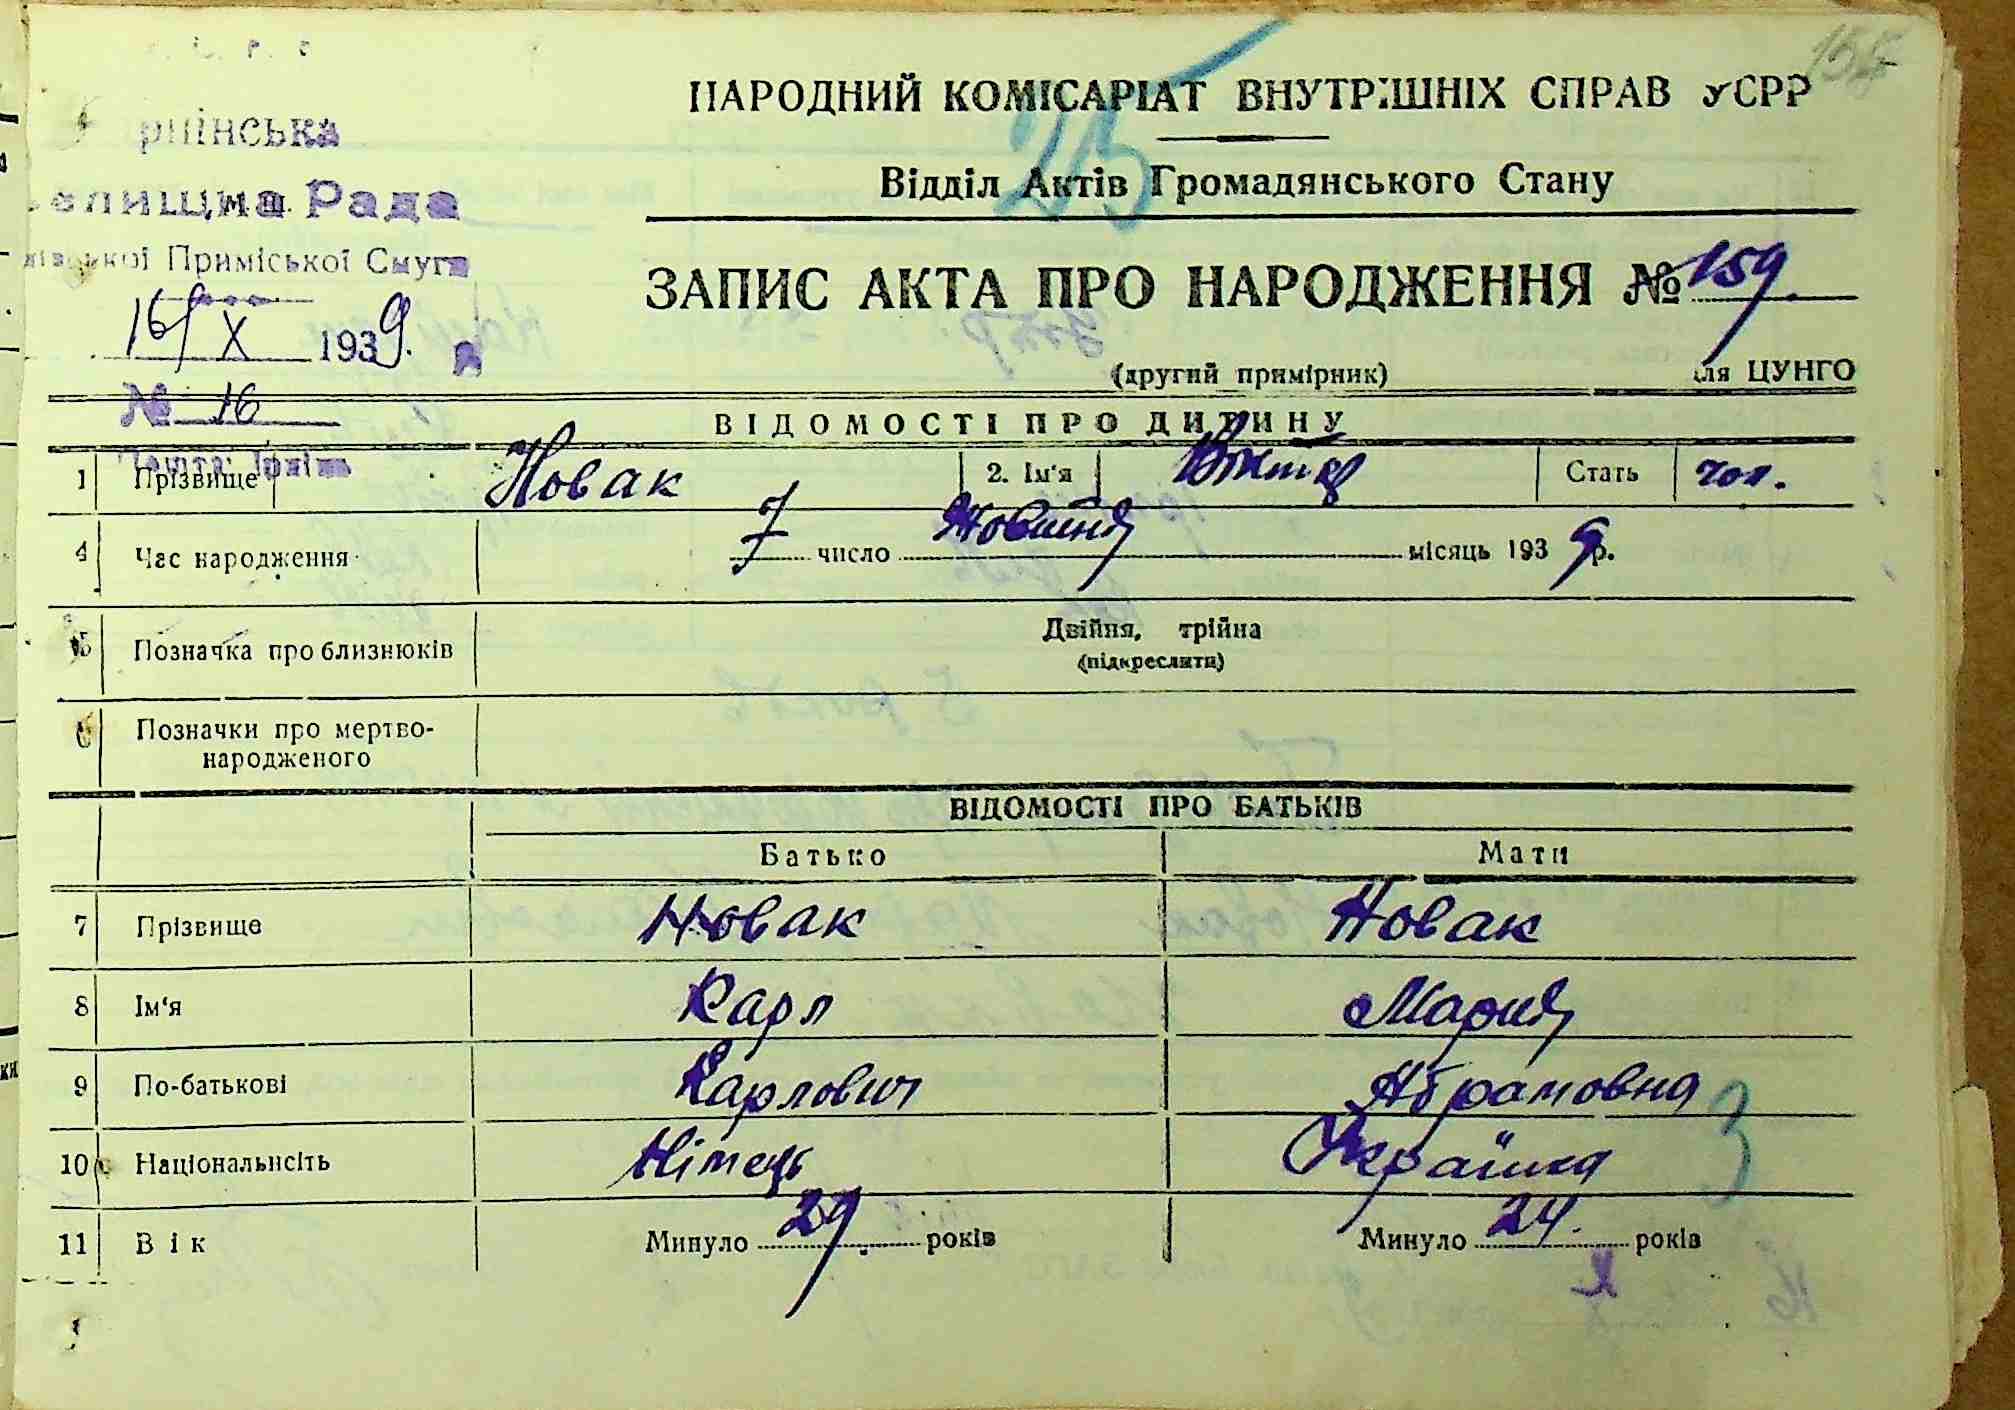 158
НАРОДНИЙ КОМІСАРІАТ ВНУТРІШНІХ СПРАВ УСРР
25
Відділ Актів Громадянського Стану
рпінська
елищна Рада
Приміської Смуги
16/X 1939 р.
№ 16
Пошта: Ірпінь
ЗАПИС АКТА ПРО НАРОДЖЕННЯ № 159.
(другий примірник) для ЦУНГО
ВІДОМОСТІ ПРО ДИТИНУ
1 Прізвище Новак 2. Ім'я Віктор Стать чол.
4 Час народження 7 число Жовтня місяць 1939 р.
5 Позначка про близнюків Двійня, трійна
(підкреслити)
6 Позначки про мертво-
народженого
ВІДОМОСТІ ПРО БАТЬКІВ
Батько Мати
7 Прізвище Новак Новак
8 Ім'я Карл Мария
9 По-батькові Карлович Абрамовна
10 Національнсіть Німець Українка
3
11 Вік Минуло 29 років Минуло 24. років